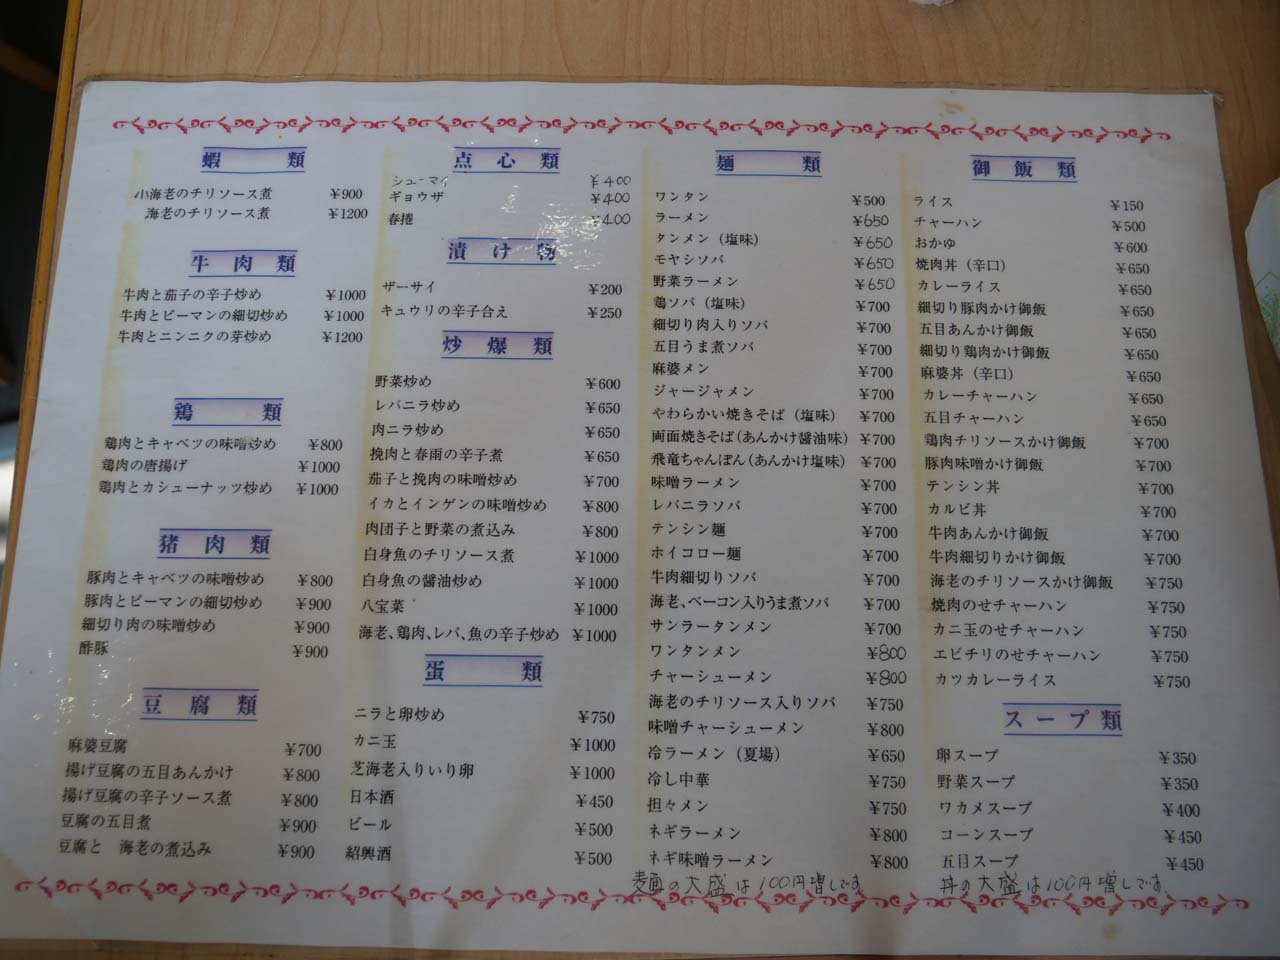 蝦類
小海老のチリソース煮 ¥900
海老のチリソース煮 ¥1200
牛肉類
牛肉と茄子の辛子炒め ¥1000
牛肉とピーマンの細切炒め ¥1000
牛肉とニンニクの芽炒め ¥1200
鶏類
鶏肉とキャベツの味噌炒め ¥800
鶏肉の唐揚げ ¥1000
鶏肉とカシューナッツ炒め ¥1000
猪肉類
豚肉とキャベツの味噌炒め ¥800
豚肉とピーマンの細切炒め ¥900
細切り肉の味噌炒め ¥900
酢豚 ¥900
豆腐類
麻婆豆腐 ¥700
揚げ豆腐の五目あんかけ ¥800
揚げ豆腐の辛子ソース煮 ¥800
豆腐の五目煮 ¥900
豆腐と 海老の煮込み ¥900
点心類
シューマイ ¥400
ギョウザ ¥400
春捲 ¥400
漬け物
ザーサイ ¥200
キュウリの辛子合え ¥250
炒爆類
野菜炒め ¥600
レバニラ炒め ¥650
肉ニラ炒め ¥650
挽肉と春雨の辛子煮 ¥650
茄子と挽肉の味噌炒め ¥700
イカとインゲンの味噌炒め ¥800
肉団子と野菜の煮込み ¥800
白身魚のチリソース煮 ¥1000
白身魚の醤油炒め ¥1000
八宝菜 ¥1000
海老、鶏肉、レバ、魚の辛子炒め ¥1000
蛋類
ニラと卵炒め ¥750
カニ玉 ¥1000
芝海老入りいり卵 ¥1000
日本酒 ¥450
ビール ¥500
紹興酒 ¥500
麺類
ワンタン ¥500
ラーメン ¥650
タンメン（塩味） ¥650
モヤシソバ ¥650
野菜ラーメン ¥650
鶏ソバ（塩味） ¥700
細切り肉入りソバ ¥700
五目うま煮ソバ ¥700
麻婆メン ¥700
ジャージャメン ¥700
やわらかい焼きそば（塩味） ¥700
両面焼きそば（あんかけ醤油味） ¥700
飛竜ちゃんぽん（あんかけ塩味） ¥700
味噌ラーメン ¥700
レバニラソバ ¥700
テンシン麺 ¥700
ホイコロー麺 ¥700
牛肉細切りソバ ¥700
海老、ベーコン入りうま煮ソバ ¥700
サンラータンメン ¥700
ワンタンメン ¥800
チャーシューメン ¥800
海老のチリソース入りソバ ¥750
味噌チャーシューメン ¥800
冷ラーメン（夏場） ¥650
冷し中華 ¥750
担々メン ¥750
ネギラーメン ¥800
ネギ味噌ラーメン ¥800
麺の大盛は100円増しです
御飯類
ライス ¥150
チャーハン ¥500
おかゆ ¥600
焼肉丼（辛口） ¥650
カレーライス ¥650
細切り豚肉かけ御飯 ¥650
五目あんかけ御飯 ¥650
細切り鶏肉かけ御飯 ¥650
麻婆丼（辛口） ¥650
カレーチャーハン ¥650
五目チャーハン ¥650
鶏肉チリソースかけ御飯 ¥700
豚肉味噌かけ御飯 ¥700
テンシン丼 ¥700
カルビ丼 ¥700
牛肉あんかけ御飯 ¥700
牛肉細切りかけ御飯 ¥700
海老のチリソースかけ御飯 ¥750
焼肉のせチャーハン ¥750
カニ玉のせチャーハン ¥750
エビチリのせチャーハン ¥750
カツカレーライス ¥750
スープ類
卵スープ ¥350
野菜スープ ¥350
ワカメスープ ¥400
コーンスープ ¥450
五目スープ ¥450
丼の大盛は100円増しです